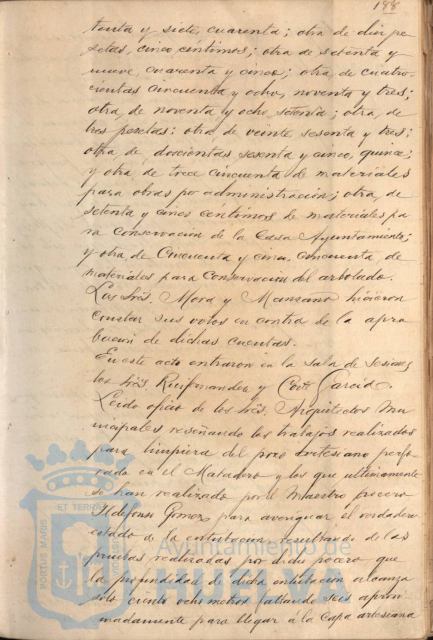 188
tenta y siete, cuarenta; otra de diez pe
setas, cinco centimos; otra de setenta y
nueve, cuarenta y cinco; otra de cuatro-
cientas cincuenta y ocho, noventa y tres;
otra de noventa y ocho, setenta; otra, de
tres pesetas; otra de veinte, sesenta y tres;
otra de doscientas sesenta y cinco, quince;
y otra de trece cincuenta de materiales
para obras por administración; otra, de
setenta y cinco centimos de materiales pa
ra conservación de la Casa Ayuntamiento;
y otra de Cincuenta y cinco, cincuenta de
materiales para Conservación del arbolado.
Los Sres. Mora y Manzano hicieron
constar sus votos en contra de la apro
bacion de dichas cuentas.
En este acto entraron en la sala de Sesiones
los Sres García.
Leido oficio de los Sres. Arquitectos Mu
nicipales reseñando los trabajos realizados
para limpieza del pozo artesiano perfo
rado en el Matadero y los que ultimamente
se han realizado por el Maestro pocero
Ildefonso Gomez para averiguar el verdadero
estado de la entubacion, resultando de las
pruebas realizadas por dicho pocero que
la profundidad de dicha entubacion alcanza
solo ciento ocho metros faltando seis aproxi
madamente para llegar á la Capa artesiana
PORTUS MARIS ET TERRAE
Ayuntamiento de
HUELVA